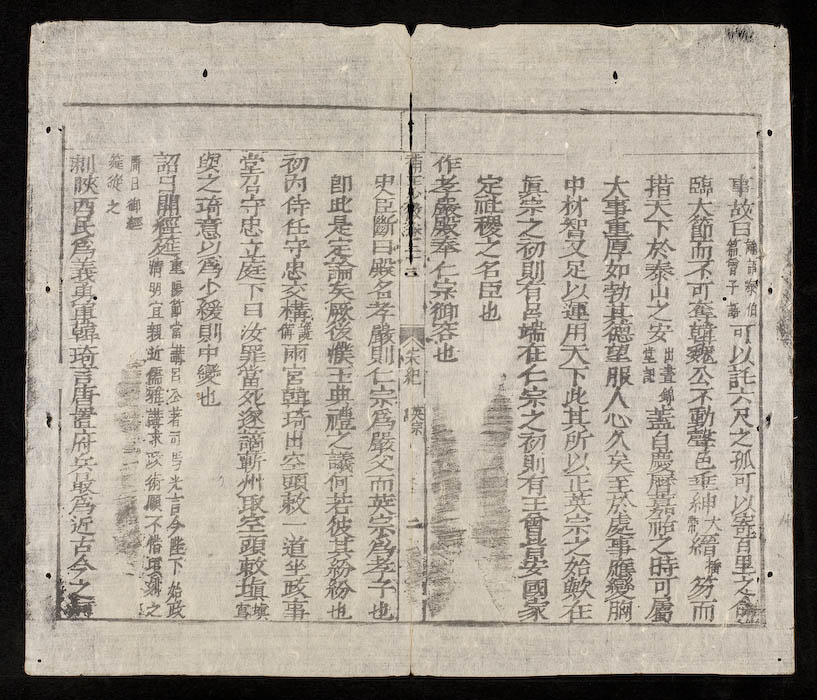 事故曰論語泰伯篇曾子語可以託六尺之孤可以寄百里之命
臨大節而不可奪韓魏公不動聲色垂紳大帶搢插笏而
措天下於泰山之安出晝錦堂記蓋自慶曆嘉祐之時可屬
大事重厚如勃其德望服人心久矣至於處事應變胸
中材智又足以運用天下此其所以正英宗之始歟在
眞宗之初則有呂端在仁宗之初則有王曾皆安國家
定社稷之名臣也
作孝嚴殿奉仁宗御容也
宋紀 英宗 二
史臣斷曰殿名孝嚴則仁宗爲嚴父而英宗爲孝子也
即此是定論矣厥後濮王典禮之議何若彼其紛紛也
初內侍任守忠交構兩宮韓琦出空頭敕一道坐政事
堂召守忠立庭下曰汝罪當死遂謫蘄州取空頭敕塡塡寫
與之琦意以爲少緩則中變也
詔日開經筵重陽節當講呂公著司馬光言今陛下始政清明宜親近儒雅講求政術願不惜頃刻之
閒日御經筵從之
刺陝西民爲義勇軍韓琦言唐置府兵最爲近古今之